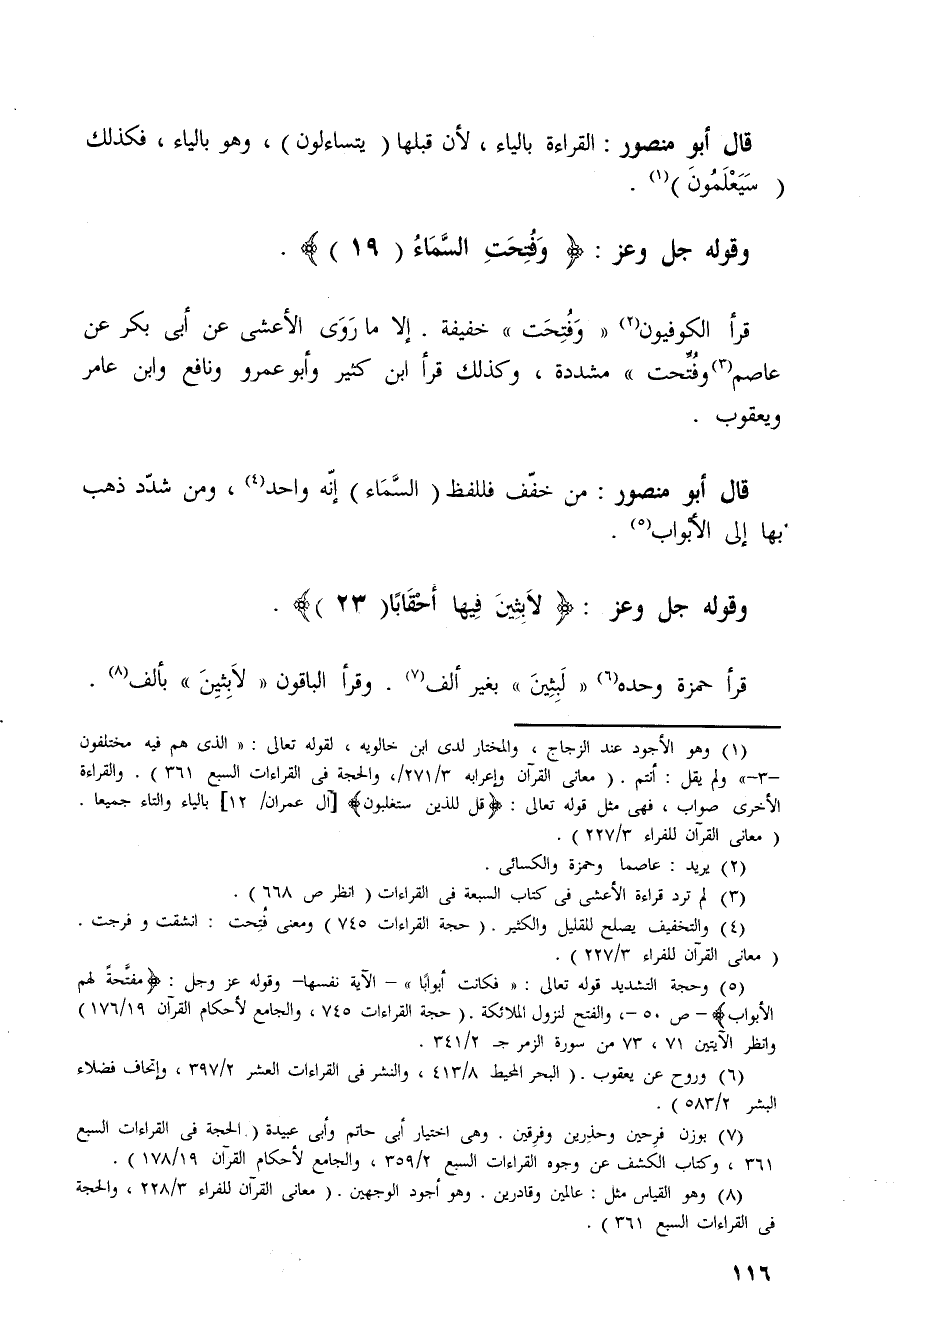 قال أبو منصور : القراءة بالياء ، لأن قبلها ( يتساءلون ) ، وهو بالياء ، فكذلك
( سَيَعْلَمُونَ )(١) .
وقوله جل وعز : ﴿ وَفُتِحَتِ السَّمَاءُ ( ١٩ ) ﴾ .
قرأ الكوفيون(٢) « وَفُتِحَت » خفيفة . إلا ما رَوَى الأعشى عن أبى بكر عن
عاصم(٣) وفُتِّحت » مشددة ، وكذلك قرأ ابن كثير وأبو عمرو ونافع وابن عامر
ويعقوب .
قال أبو منصور : من خفّف فللفظ ( السَّمَاء ) إنّه واحد(٤) ، ومن شدّد ذهب
بها إلى الأبواب(٥) .
وقوله جل وعز : ﴿ لاَبِثِينَ فِيها أَحْقَابًا ( ٢٣ ) ﴾ .
قرأ حمزة وحده(٦) « لَبِثِينَ » بغير ألف(٧) . وقرأ الباقون « لاَبِثِينَ » بألف(٨) .
(١) وهو الأجود عند الزجاج ، والمختار لدى ابن خالويه ، لقوله تعالى : « الذى هم فيه مختلفون
-٣-» ولم يقل : أنتم . ( معانى القرآن وإعرابه ٢٧١/٣/، والحجة فى القراءات السبع ٣٦١ ) . والقراءة
الأخرى صواب ، فهى مثل قوله تعالى : ﴿قل للذين ستغلبون﴾ [آل عمران/ ١٢] بالياء والتاء جميعا .
( معانى القرآن للفراء ٢٢٧/٣ ) .
(٢) يريد : عاصما وحمزة والكسائى .
(٣) لم ترد قراءة الأعشى فى كتاب السبعة فى القراءات ( انظر ص ٦٦٨ ) .
(٤) والتخفيف يصلح للقليل والكثير . ( حجة القراءات ٧٤٥ ) ومعنى فُتِحت : انشقت و فرجت .
( معانى القرآن للفراء ٢٢٧/٣ ) .
(٥) وحجة التشديد قوله تعالى : « فكانت أبوابًا » - الآية نفسها- وقوله عز وجل : ﴿مفتَّحةً لهم
الأبواب﴾ - ص ٥٠ -، والفتح لنزول الملائكة . ( حجة القراءات ٧٤٥ ، والجامع لأحكام القرآن ١٧٦/١٩ )
وانظر الآيتين ٧١ ، ٧٣ من سورة الزمر جـ ٣٤١/٢ .
(٦) وروح عن يعقوب . ( البحر المحيط ٤١٣/٨ ، والنشر فى القراءات العشر ٣٩٧/٢ ، وإتحاف فضلاء
البشر ٥٨٣/٢ ) .
(٧) بوزن فرِحين وحذِرين وفرِقين . وهى اختيار أبى حاتم وأبى عبيدة ( الحجة فى القراءات السبع
٣٦١ ، وكتاب الكشف عن وجوه القراءات السبع ٣٥٩/٢ ، والجامع لأحكام القرآن ١٧٨/١٩ ) .
(٨) وهو القياس مثل : عالمين وقادرين . وهو أجود الوجهين . ( معانى القرآن للفراء ٢٢٨/٣ ، والحجة
فى القراءات السبع ٣٦١ ) .
١١٦